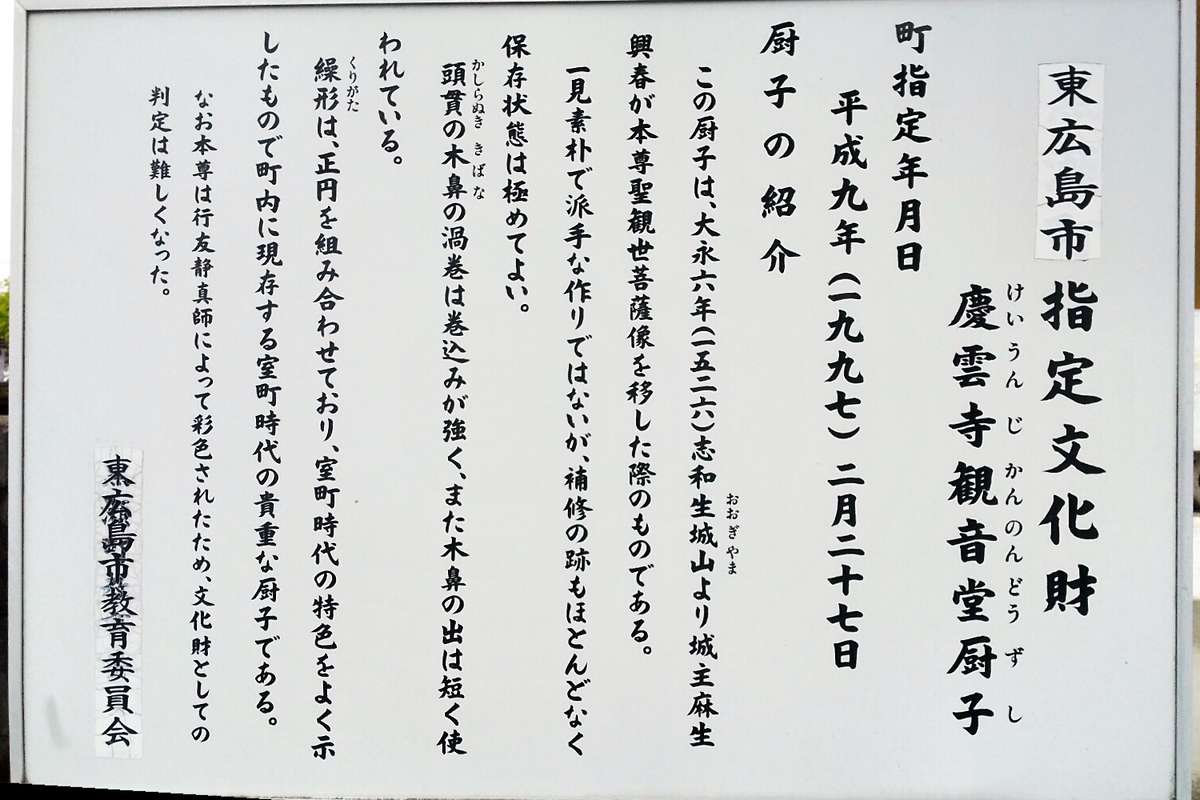 東広島市指定文化財
けいうんじ かんのんどうずし
慶雲寺観音堂厨子
町指定年月日
平成九年(一九九七)二月二十七日
厨子の紹介
おおぎやま
この厨子は、大永六年(一五二六)志和生城山より城主麻生
興春が本尊聖観世菩薩像を移した際のものである。
一見素朴で派手な作りではないが、補修の跡もほとんどなく
保存状態は極めてよい。
かしらぬき きばな
頭貫の木鼻の渦巻は巻込みが強く、また木鼻の出は短く使
われている。
くりがた
繰形は、正円を組み合わせており、室町時代の特色をよく示
したもので町内に現存する室町時代の貴重な厨子である。
なお本尊は行友静真師によって彩色されたため、文化財としての
判定は難しくなった。
東広島市教育委員会